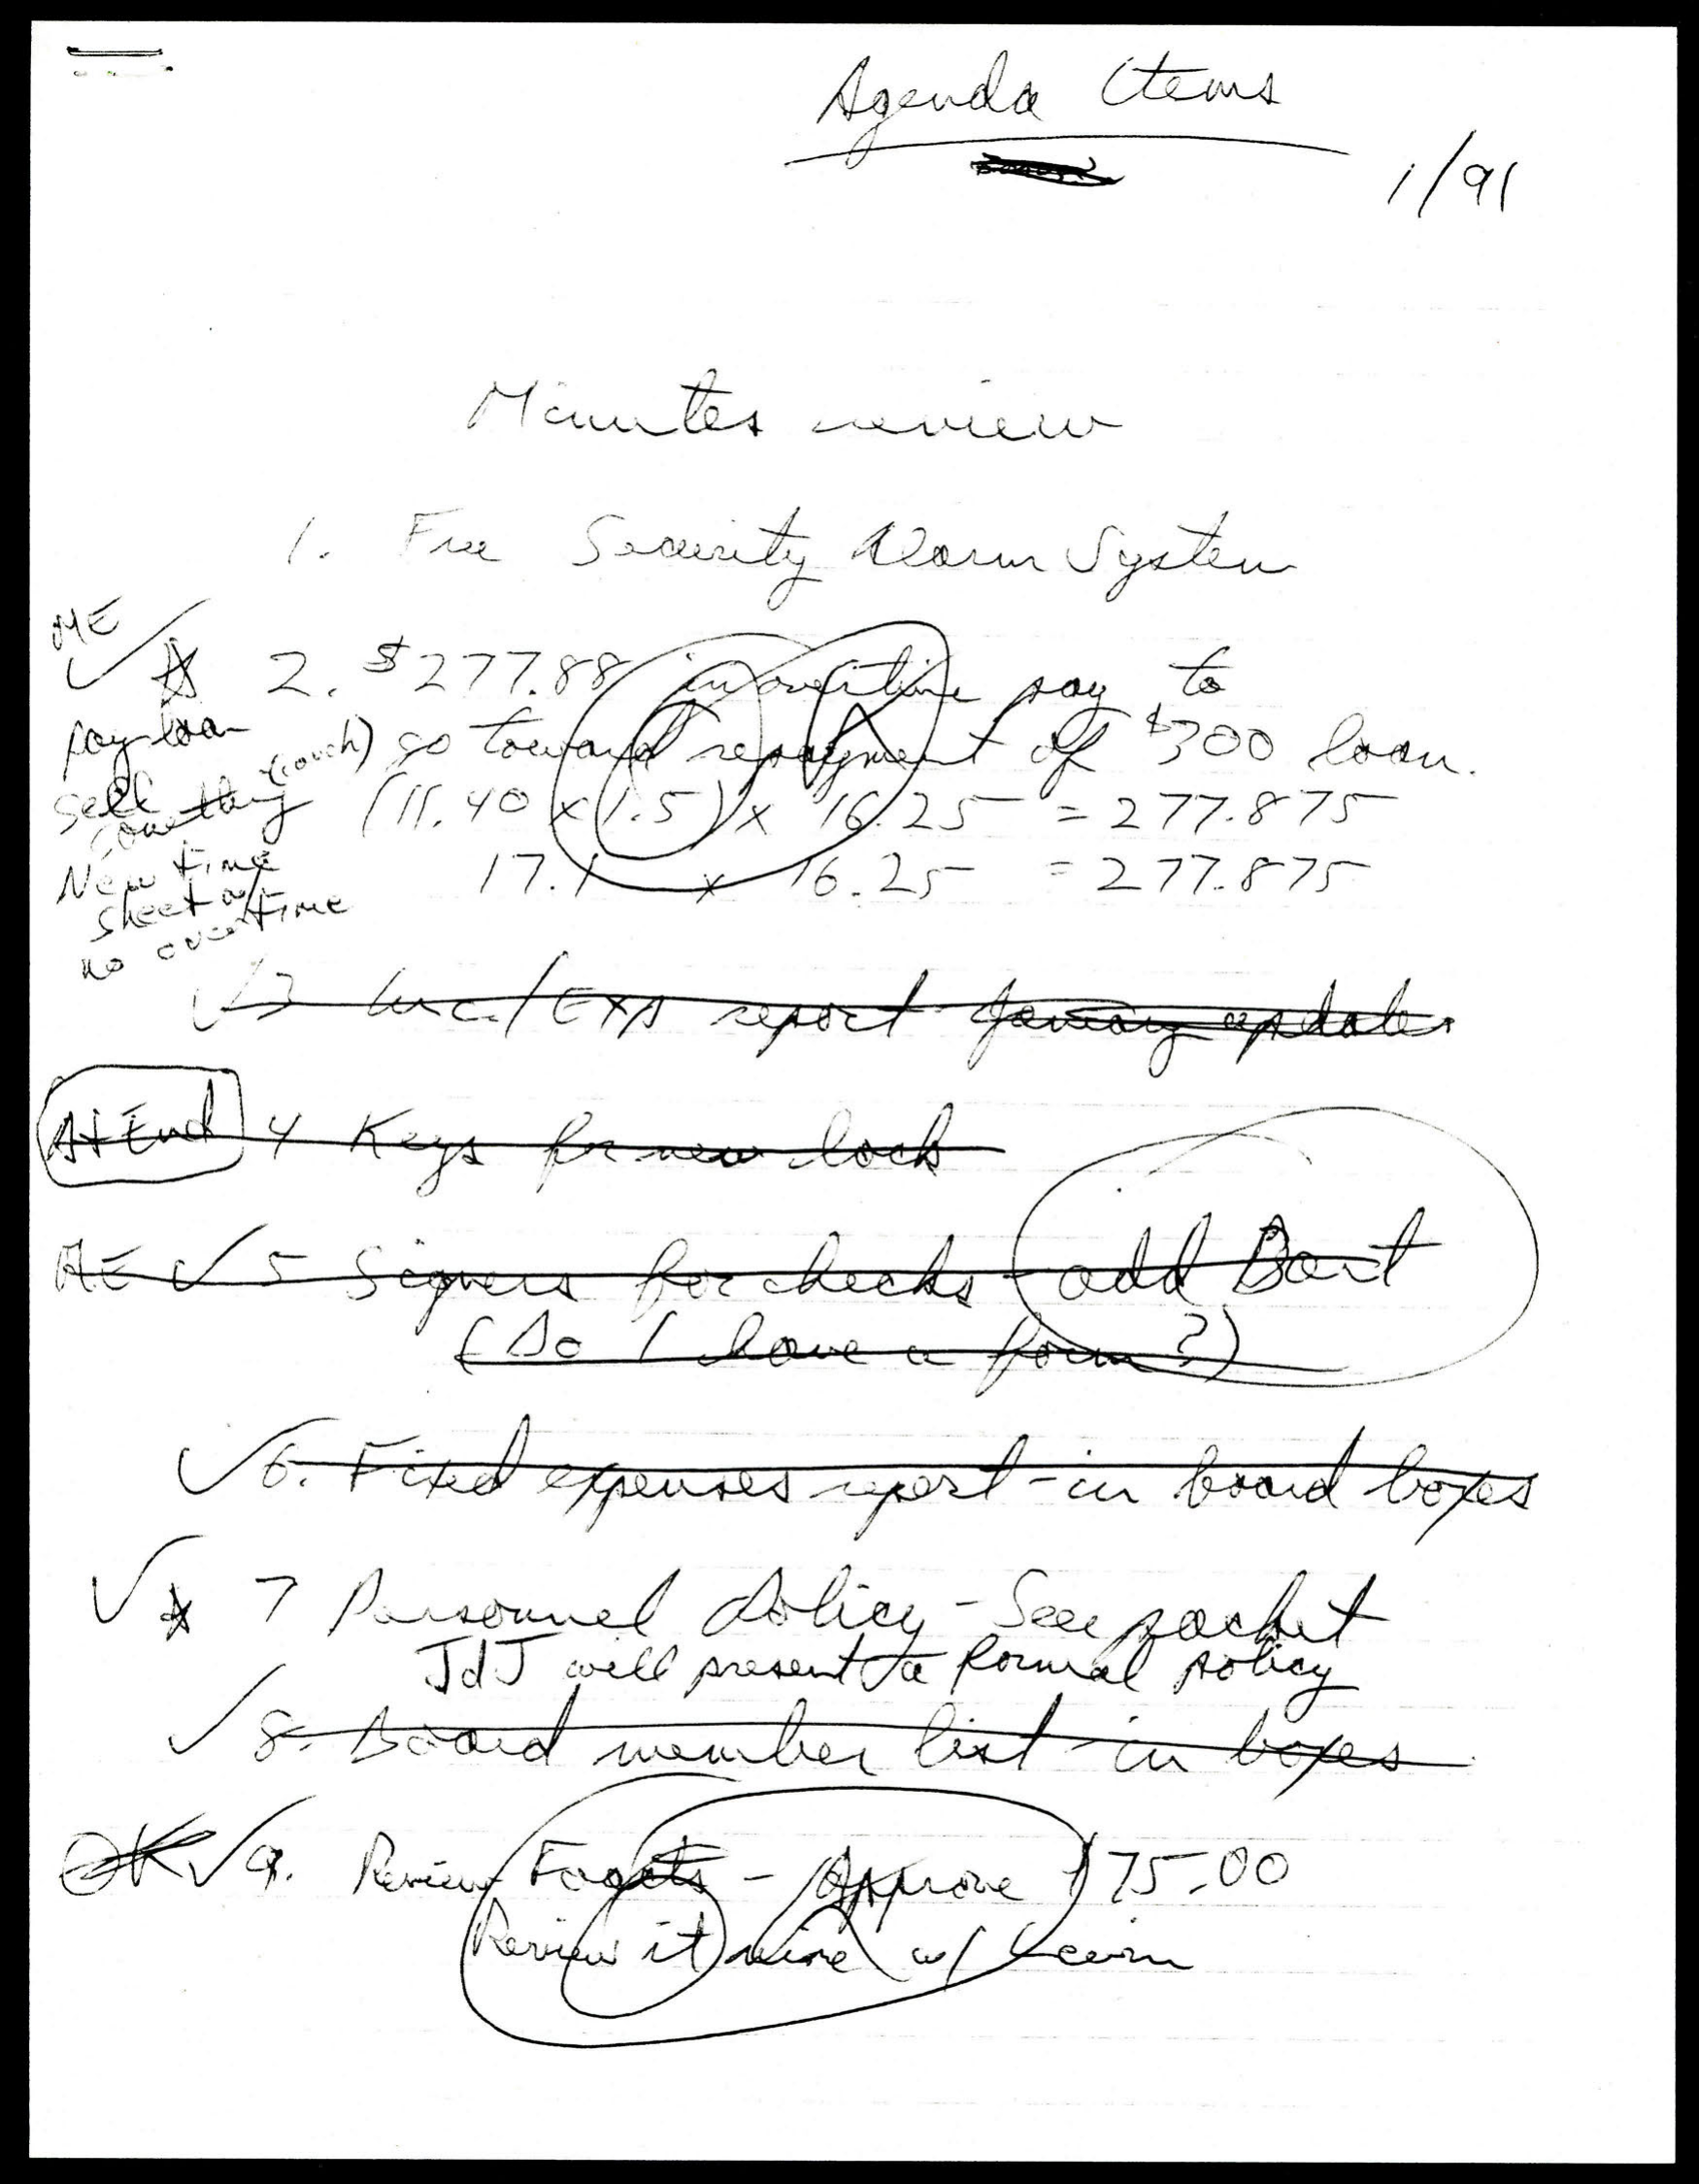 Agenda Items
1/91
Minutes review
1. Free Security Alarm System
ME
2. $277.88 in overtime pay to
go toward repayment of $300 loan.
(11.40 x 1.5) x 16.25 = 277.875
17.1 x 16.25 = 277.875
pay loan
sell
something (couch)
New time
sheet w/
no overtime
3 Inc./Exp report January update
At End 4 Keys for new lock
ME 5 Signers for checks - add Bart
(Do I have a form?)
6. Fixed expenses report - in board boxes
7 Personnel Policy - See packet
JdJ will present a formal policy
8. Board member list - in boxes
OK 9. Review - Approve $75.00
Review it w/